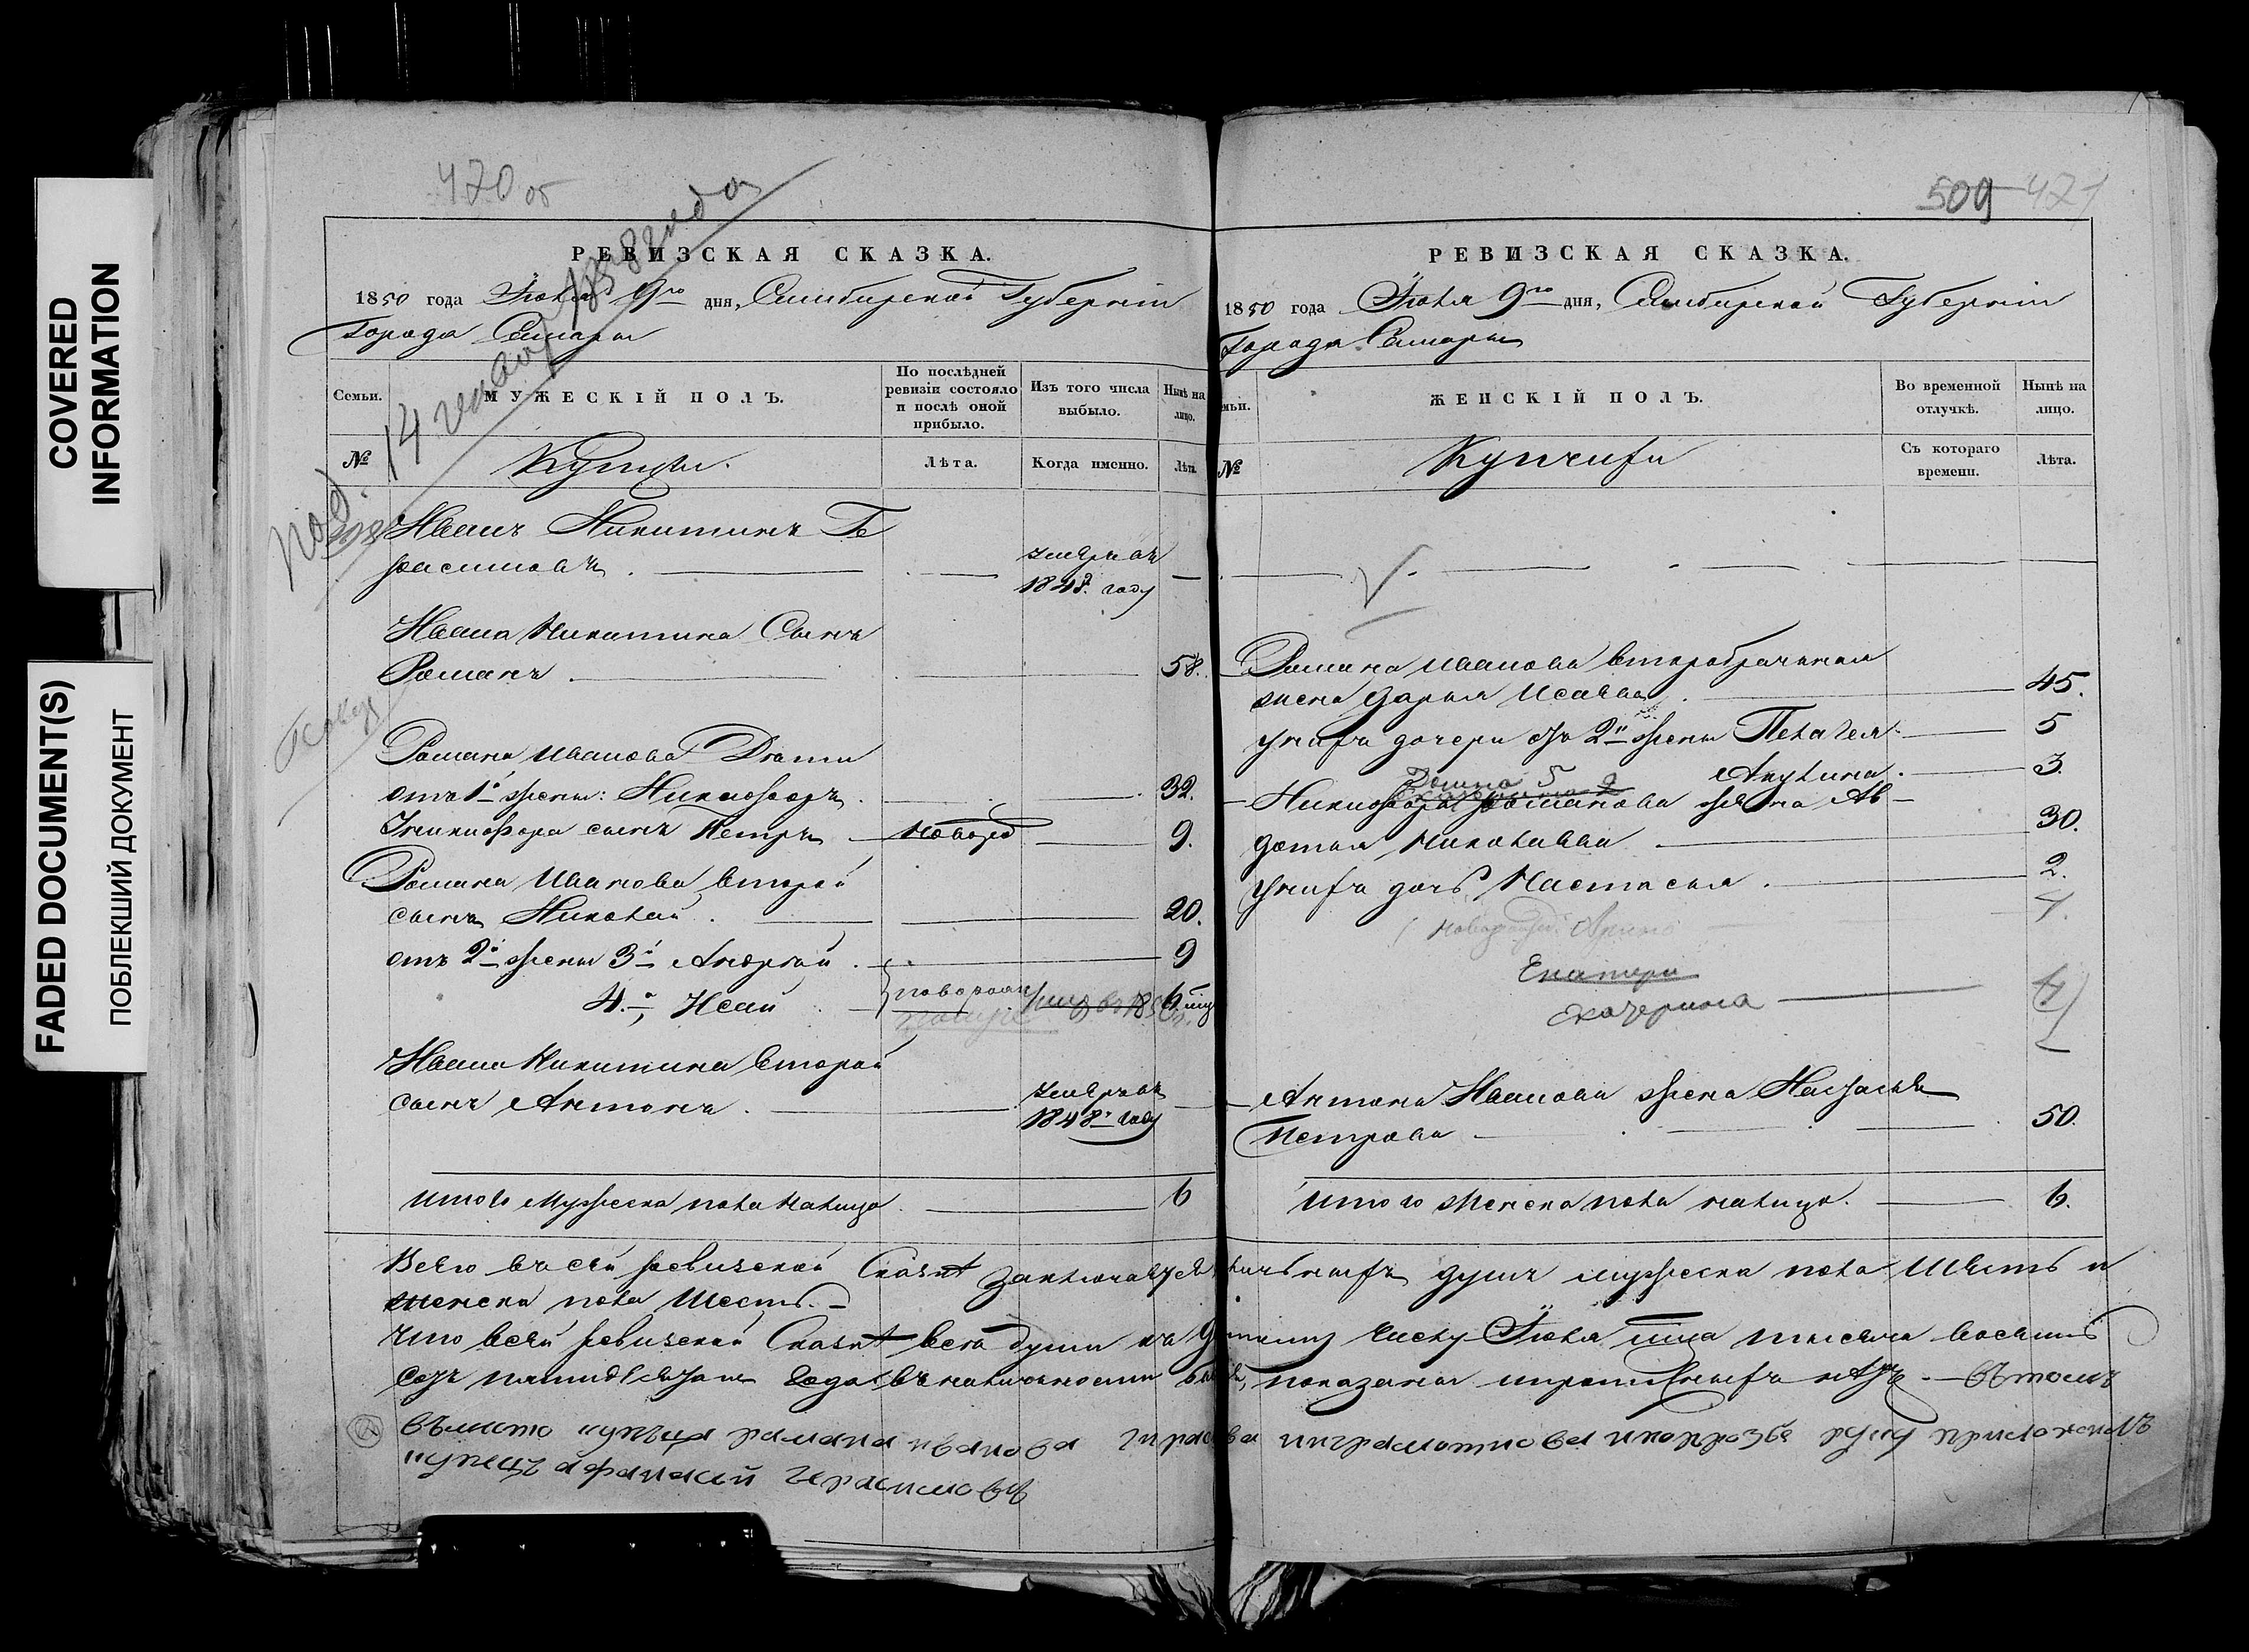 COVERED
INFORMATION
FADED DOCUMENT(S)
ПОБЛЕКШИЙ ДОКУМЕНТ
420 об
РЕВИЗСКАЯ СКАЗКА.
1850 года Іюля 9го дня, Симбирской Губерніи
Города Самары
Семьи.
МУЖЕСКІЙ ПОЛЪ.
По послѣдней
ревизіи состояло
и послѣ оной
прибыло.
Изъ того числа
выбыло.
Нынѣ на
лицо.
№
Купцы.
Лѣта.
Когда именно.
Лѣта.
Под. 14
Иванъ Никитинъ Ге
расимовъ
умеръ въ
году
Ивана Никитина Сынъ
Романъ 58.
Романа Иванова Дѣти
отъ 1й жены: Никифоръ 32.
У Никифора сынъ Петръ 9.
Романа Иванова второй
сынъ Николай 20.
отъ 2й жены 3й Андрей 9
4й, Исай
Ивана Никитина второй
сынъ Антонъ
умеръ въ
1848 году
Итого мужеска пола налицо 6
509 421
РЕВИЗСКАЯ СКАЗКА.
1850 года Іюля 9го дня, Симбирской Губерніи
Города Самары
ЖЕНСКІЙ ПОЛЪ.
Во временной
отлучкѣ.
Нынѣ на
лицо.
№
Купчихи
Съ котораго
времени.
Лѣта.
Романа Иванова второбрачная
жена Дарья Исаева 45.
У нихъ дочери отъ 2й жены Пелагея 5
Акулина 3.
Никифора Романова жена Ав
дотья Николаева 30.
У нихъ дочь Настасья 2.
Арина
Екатери
Екатерина
Антона Иванова жена Настасья
Петрова 50.
Итого женска пола налицо. 6.
Всего въ сей ревизской Сказкѣ заключается наличныхъ душъ мужеска пола шесть и
женска пола шесть.
Что въ сей ревизской Сказкѣ всѣ души къ 9 числу Іюля тысяча восемь
сотъ пятидесятаго года въ наличности показаны и прописныхъ нѣтъ. — въ томъ
вместо купъца рамана иванова
купецъ афанасей герасимовъ